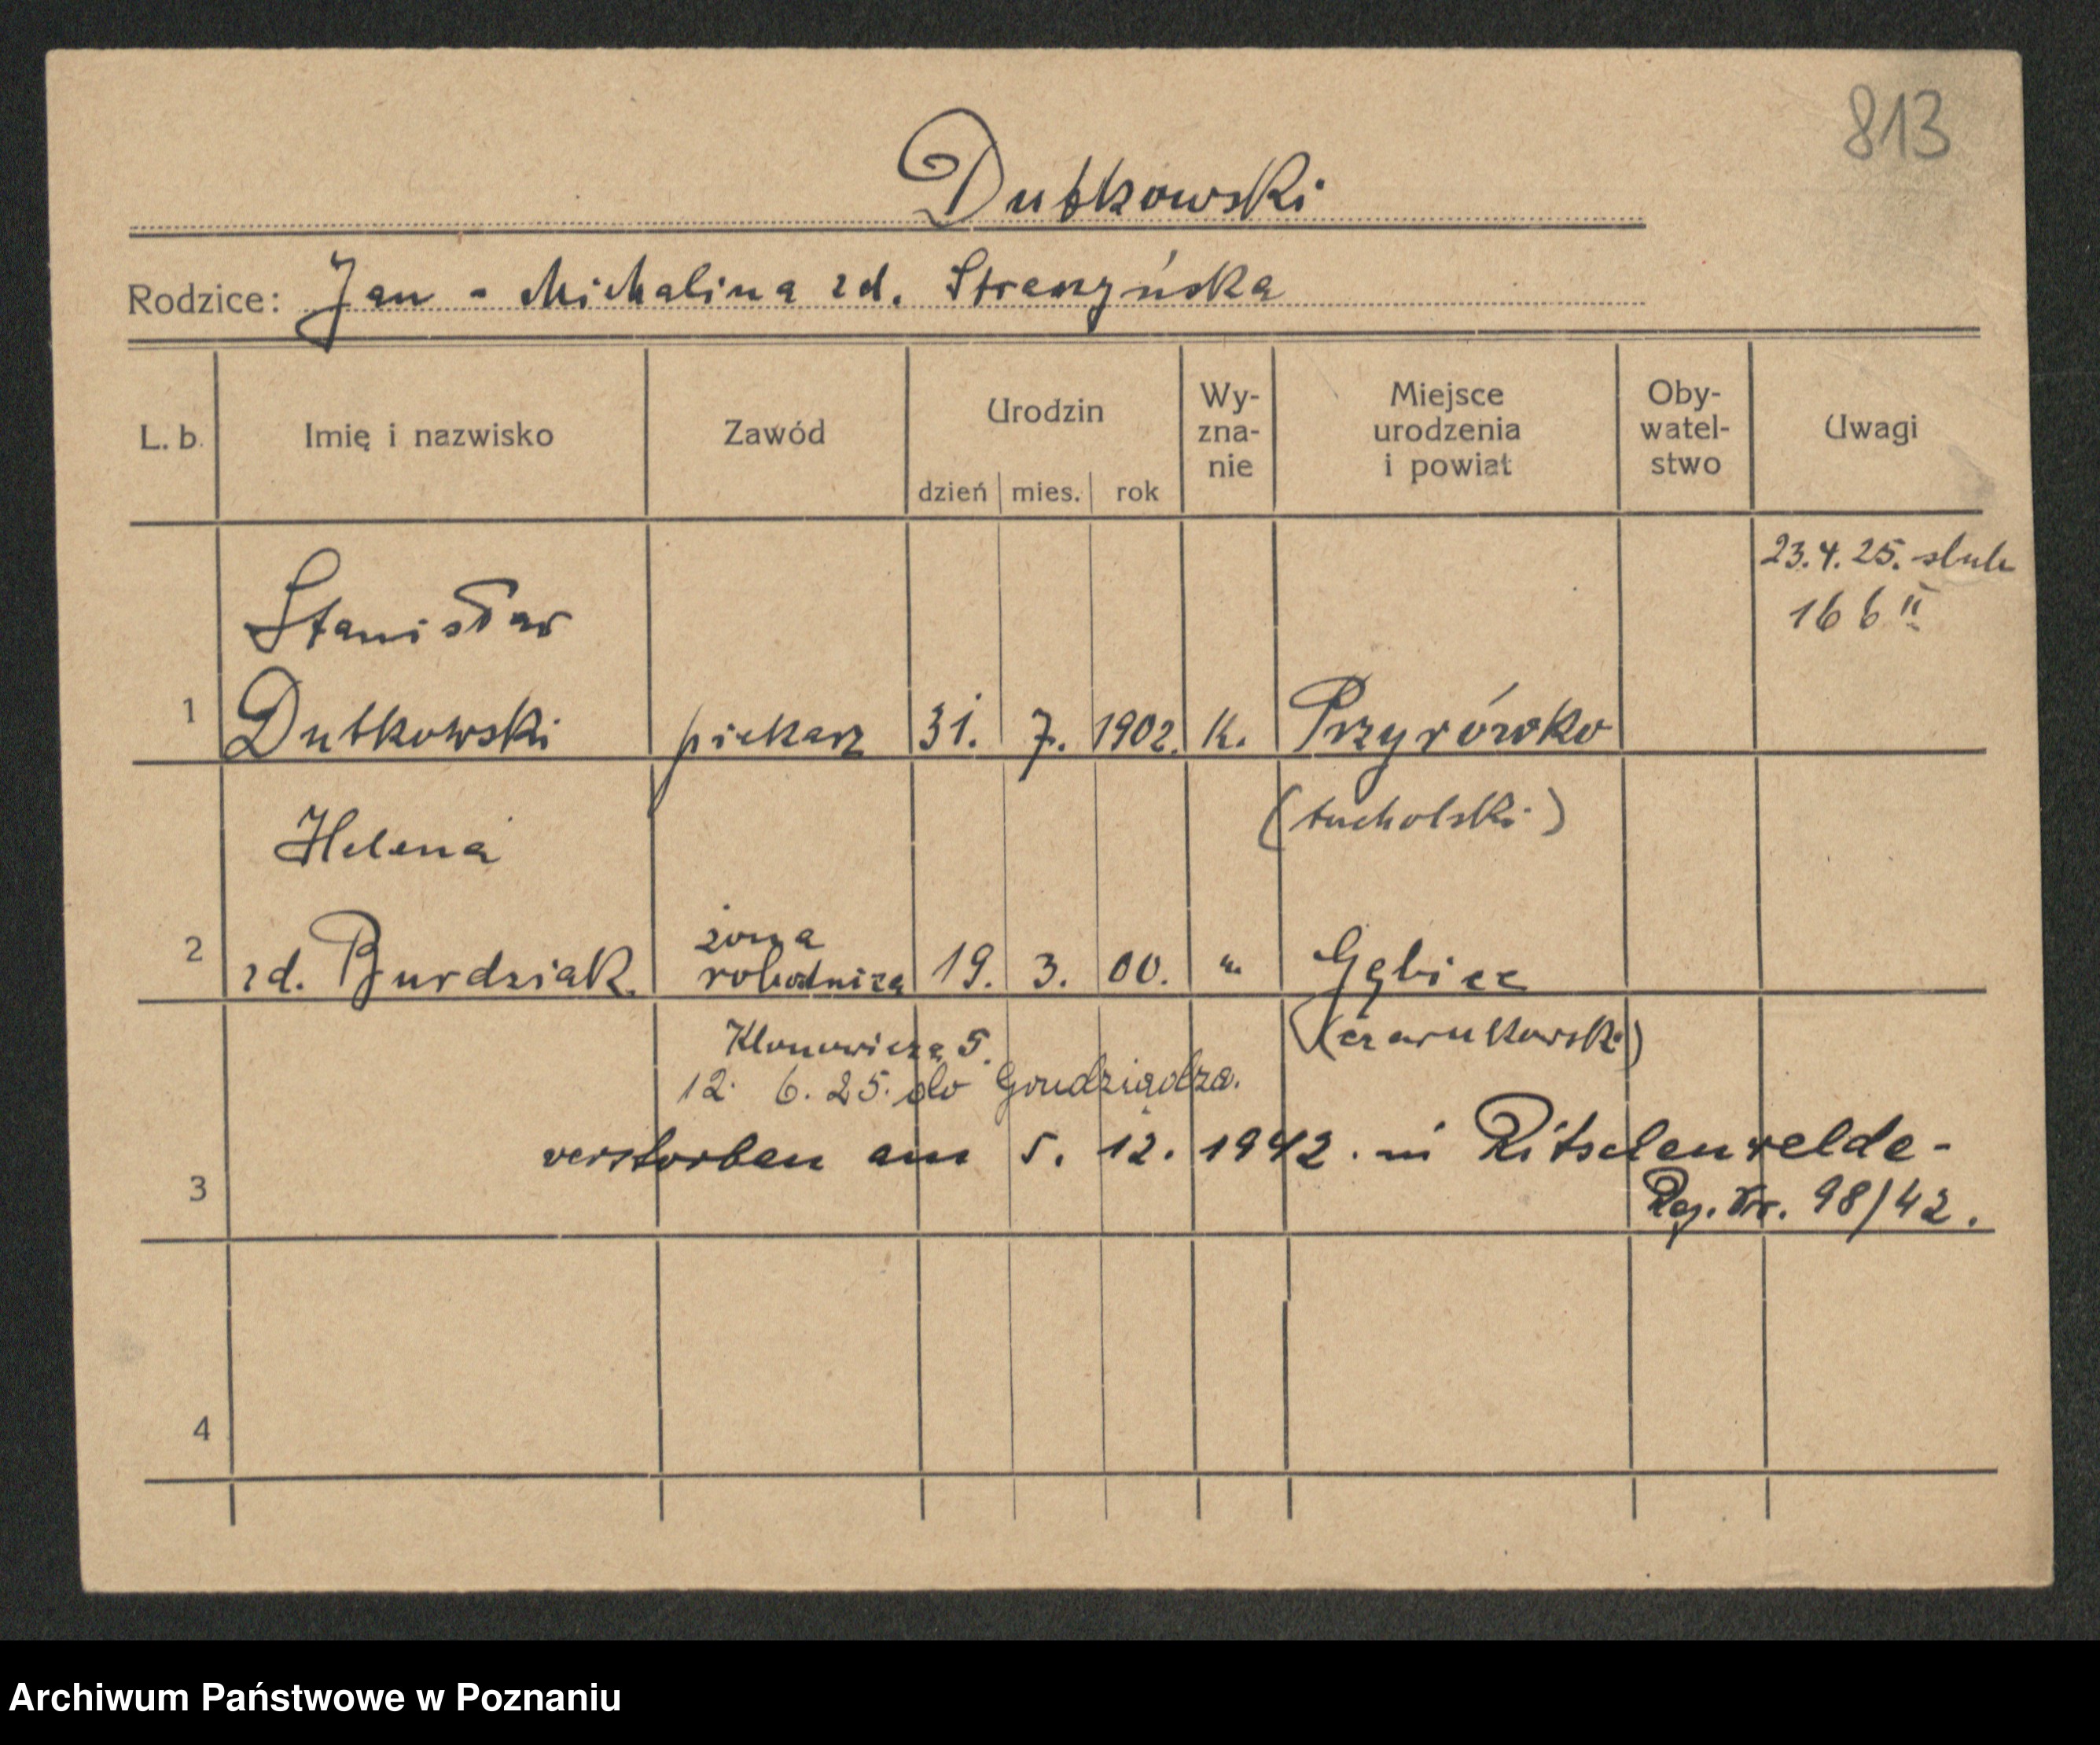 813
Dutkowski
Rodzice: Jan - Michalina zd. Straszyńska
L. b. Imię i nazwisko Zawód Urodzin dzień mies. rok Wy-zna-nie Miejsce urodzenia i powiat Oby-watel-stwo Uwagi
23.4.25. slub
166 II
Stanisław
1 Dutkowski piekarz 31. 7. 1902. K. Przyrówko
(tucholski)
Helena
żona
2 zd. Burdziak robotnica 19. 3. 00. " Gębice
(czarnkowski)
Klonowicza 5.
12. 6. 25. do Grudziądza.
verstorben am 5. 12. 1942. in Ritschenwalde -
3 Reg. Nr. 98/42.
4
Archiwum Państwowe w Poznaniu